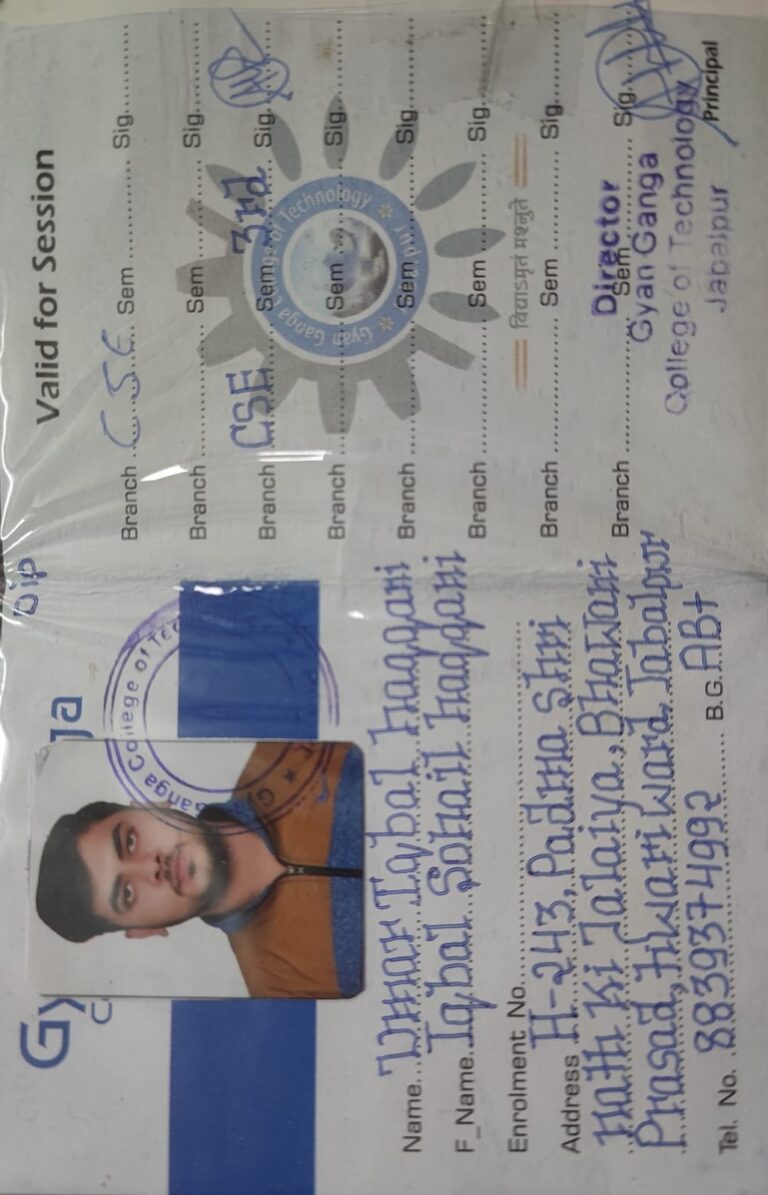 Gy
ja
Dip
Ganga College of Tec
Name... Umar Iqbal haqqani
F_Name... Iqbal Sohail haqqani
Enrolment No.....................
Address H-243, Padma Shri
Hathi Ki Talaiya, Bhawani
Prasad, tiwari ward, Jabalpur
Tel. No. 8839374992 B.G. AB+
Valid for Session
Branch CSE Sem ............ Sig............
Branch ............ Sem ............ Sig............
Branch CSE Sem 3rd Sig.
Branch ............ Sem ............ Sig............
Branch ............ Sem ............ Sig............
Branch ............ Sem ............ Sig............
विद्याऽमृतं मश्नुते
Branch ............ Sem ............ Sig............
Branch ............ Sem ............ Sig............
Gyan Ganga College of Technology
Director
Gyan Ganga
College of Technology
Jabalpur
Principal